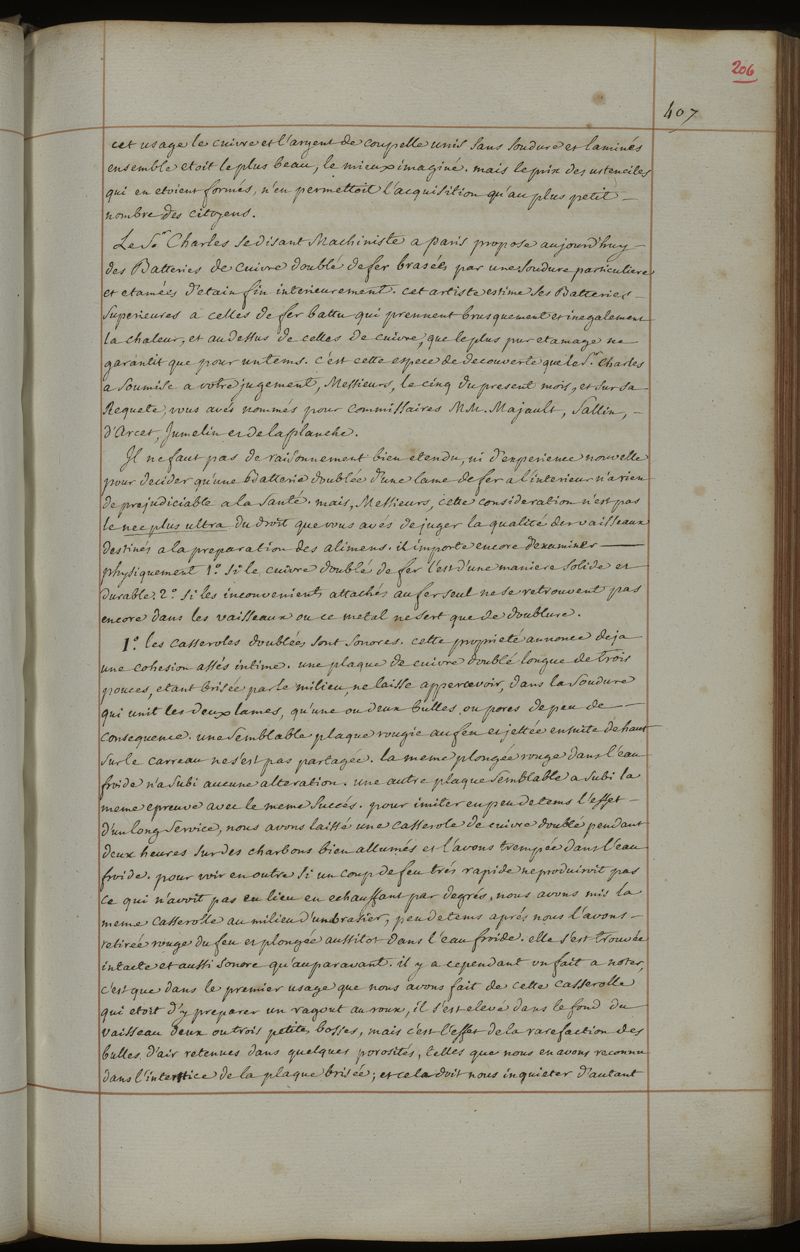 206
407
cet usage le cuivre et l'argent de coupelle unis sans soudure et laminés
ensemble etoit le plus beau, le mieux imaginé. mais le prix des ustenciles
qui en etoient formés, n'en permettoit l'acquisition qu'au plus petit –
nombre des citoyens.
Le Sr. Charles se disant Machiniste a Paris propose aujourd'huy –
des Batteries de cuivre doublé de fer brasées par une soudure particuliere
et etamées d'etain fin interieurement. cet artiste estime ses Batteries –
superieures a celles de fer battu qui prennent brusquement et inegalement
la chaleur, et au dessus de celles de cuivre, que le plus pur etamage ne
garantit que pour un tems. c'est cette espece de decouverte que le Sr. Charles
a soumise a votre jugement, Messieurs, le cinq du present mois, et sur sa
Requete, vous avés nommés pour commissaires MM. Majault, Sallin, –
d'Arcet, Jumelin et de la planche.
Il ne faut pas de raisonnement bien etendu, ni d'experience nouvelle
pour decider qu'une Batterie doublée d'une lame de fer a l'interieur n'a rien
de prejudiciable a la santé. mais, Messieurs, cette consideration n'est pas
le nec plus ultra du droit que vous avés de juger la qualité des vaisseaux
destinés a la preparation des alimens. il importe encore d'examiner —
physiquement 1.° si le cuivre doublé de fer l'est d'une maniere solide et
durable, 2.° si les inconvenients attachés au fer seul ne se retrouvent pas
encore dans les vaisseaux ou ce metal ne sert que de doublure.
1.° les casseroles doublées sont sonores. cette proprieté annonce deja
une cohesion assés intime. une plaque de cuivre doublé longue de trois
pouces, etant brisée par le milieu, ne laisse appercevoir, dans la soudure
qui unit les deux lames, qu'une ou deux bulles ou pores de peu de —
consequence. une semblable plaque rougie au feu et jettée ensuite de haut
sur le carreau ne s'est pas partagée. la meme plongée rouge dans l'eau
froide n'a subi aucune alteration. une autre plaque semblable a subi la
meme epreuve avec le meme succés. pour imiter en peu de tems l'effet –
d'un long service, nous avons laissé une casserole de cuivre doublé pendant
deux heures sur des charbons bien allumés et l'avons trempée dans l'eau
froide. pour voir en outre si un coup de feu trés rapide ne produiroit pas
ce qui n'avoit pas eu lieu en echauffant par degrés, nous avons mis la
meme casserolle au milieu d'un brasier, peu de tems aprés nous l'avons –
retirée rouge du feu et plongée aussitot dans l'eau froide. elle s'est trouvée
intacte et aussi sonore qu'auparavant. il y a cependant un fait a noter,
c'est que dans le premier usage que nous avons fait de cette casserolle
qui etoit d'y preparer un ragout au roux, il s'est elevé dans le fond du
vaisseau deux ou trois petites bosses, mais c'est l'effet de la rarefaction des
bulles d'air retenues dans quelques porosités, telles que nous en avons reconnu
dans l'interstice de la plaque brisée; et cela doit nous inquieter d'autant